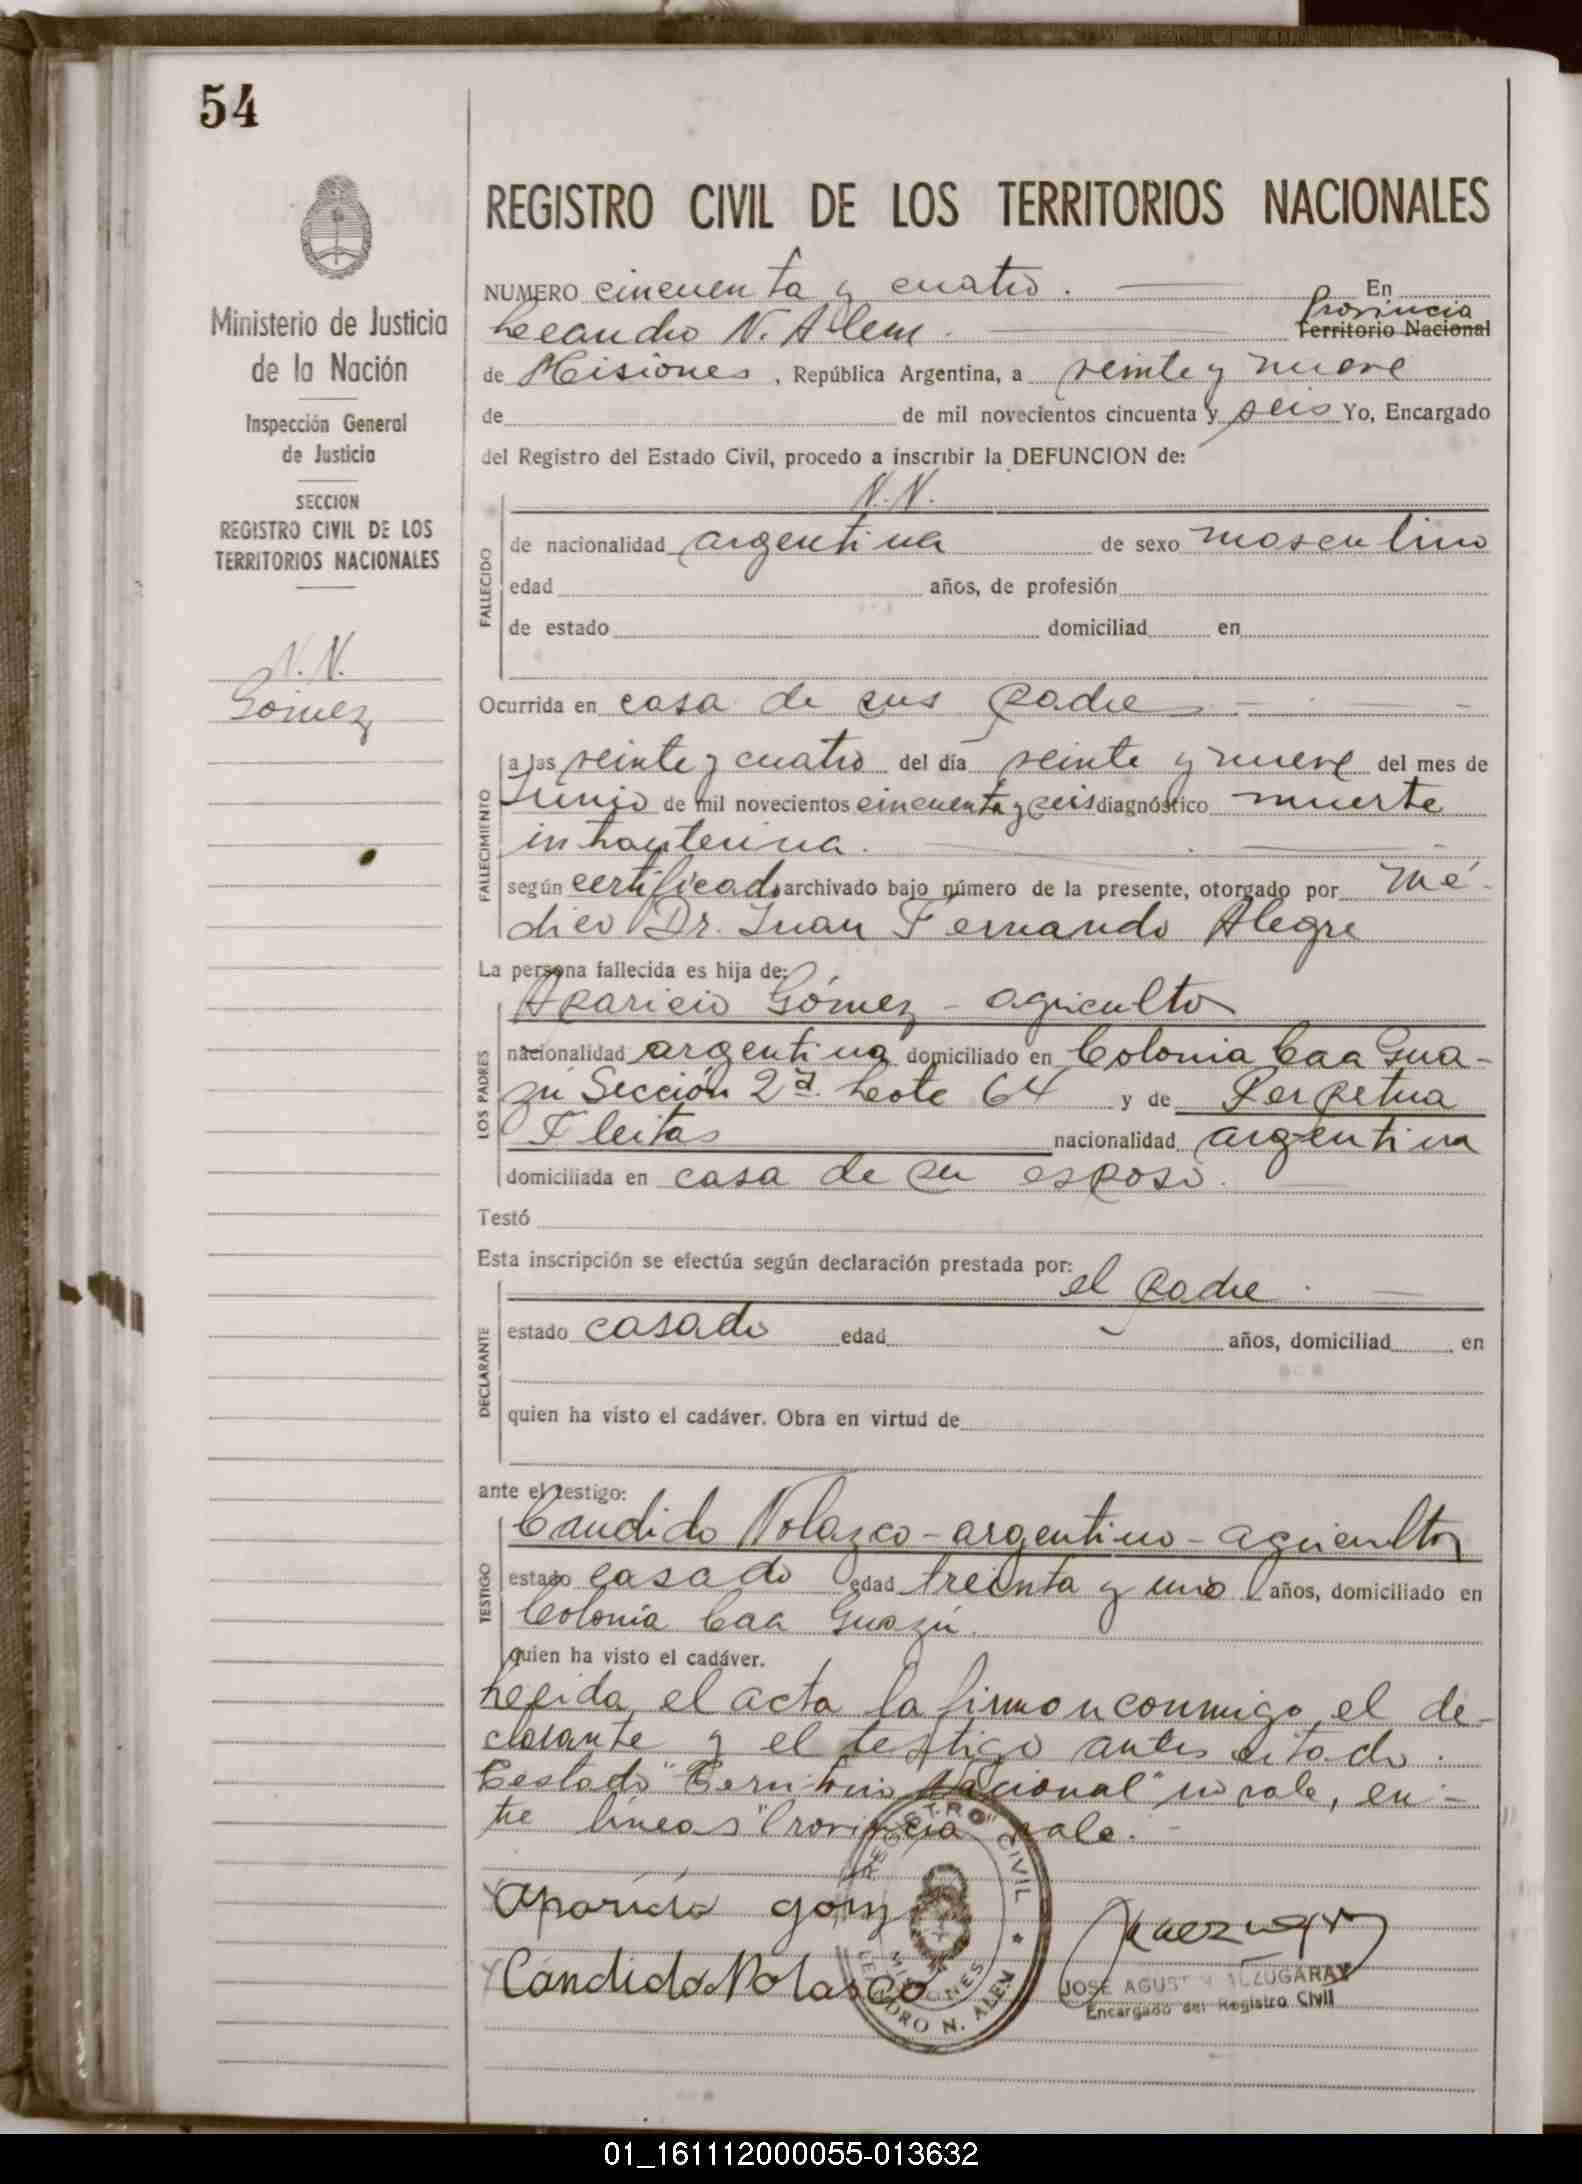 54
REGISTRO CIVIL DE LOS TERRITORIOS NACIONALES
Ministerio de Justicia
de la Nación
Inspección General
de Justicia
SECCION
REGISTRO CIVIL DE LOS
TERRITORIOS NACIONALES
N. N.
Gómez
NUMERO cincuenta y cuatro. En
Provincia
Leandro N. Alem. Territorio Nacional
de Misiones, República Argentina, a veinte y nueve
de de mil novecientos cincuenta y seis Yo, Encargado
del Registro del Estado Civil, procedo a inscribir la DEFUNCION de:
N. N.
FALLECIDO
de nacionalidad argentina de sexo masculino
edad años, de profesión
de estado domiciliad en
Ocurrida en casa de sus padres
FALLECIMIENTO
a las veinte y cuatro del día veinte y nueve del mes de
Junio de mil novecientos cincuenta y seis diagnóstico muerte
intrauterina.
según certificado archivado bajo número de la presente, otorgado por Mé-
dico Dr. Juan Fernando Alegre
La persona fallecida es hija de:
LOS PADRES
Aparicio Gómez - agricultor
nacionalidad argentina domiciliado en Colonia Caa Gua-
zú Sección 2ª. Lote 64 y de Perpetua
Fleitas nacionalidad argentina
domiciliada en casa de su esposo.
Testó
Esta inscripción se efectúa según declaración prestada por:
DECLARANTE
el padre.
estado casado edad años, domiciliad en
quien ha visto el cadáver. Obra en virtud de
ante el testigo:
TESTIGO
Candido Nolazco - argentino - agricultor
estado casado edad treinta y uno años, domiciliado en
Colonia Caa Guazú.
quien ha visto el cadáver.
Leída el acta la firman conmigo el de-
clarante y el testigo antes citado.
Testado "Territorio Nacional" no vale, en-
tre líneas "Provincia" vale.
Aparicio
Candido Nolasco
REGISTRO CIVIL
MISIONES
LEANDRO N. ALEM
JOSE AGUSTIN ALZUGARAY
Encargado del Registro Civil
01_161112000055-013632